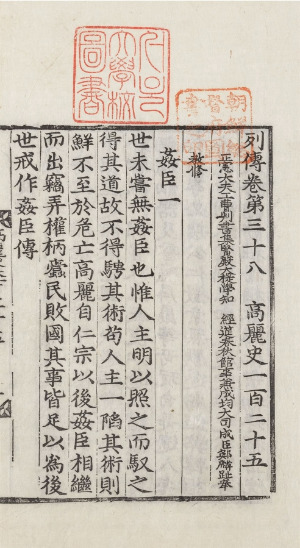 大學校
圖書
朝鮮總
督府圖
書之印
列傳卷第三十八 高麗史一百二十五
正憲大夫工曹判書集賢殿大提學知 經筵春秋館事兼成均大司成臣鄭麟趾奉
教修
姦臣一
世未嘗無姦臣也惟人主明以照之而馭之
得其道故不得騁其術苟人主一陷其術則
鮮不至於危亡高麗自仁宗以後姦臣相繼
而出竊弄權柄蠹民敗國其事皆足以為後
世戒作姦臣傳